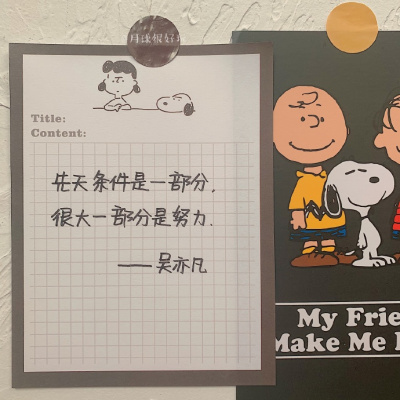 Title:
Content:
先天条件是一部分,
很大一部分是努力.
——吴亦凡
My Frie
Make Me